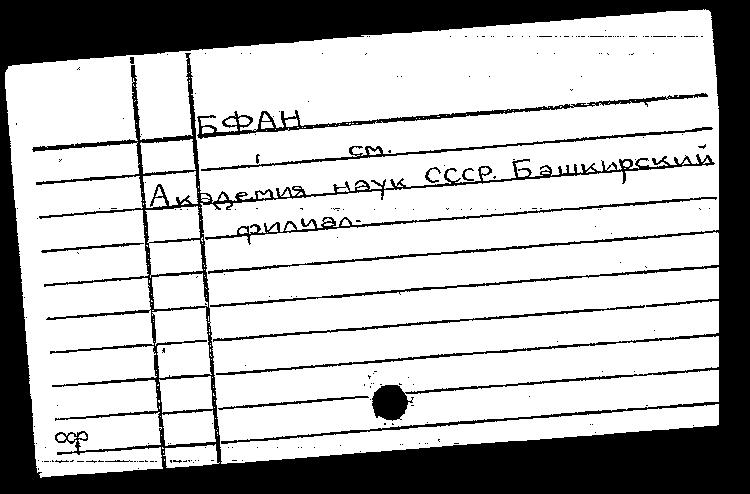 БФАН
см.
Академия наук СССР. Башкирский
филиал.